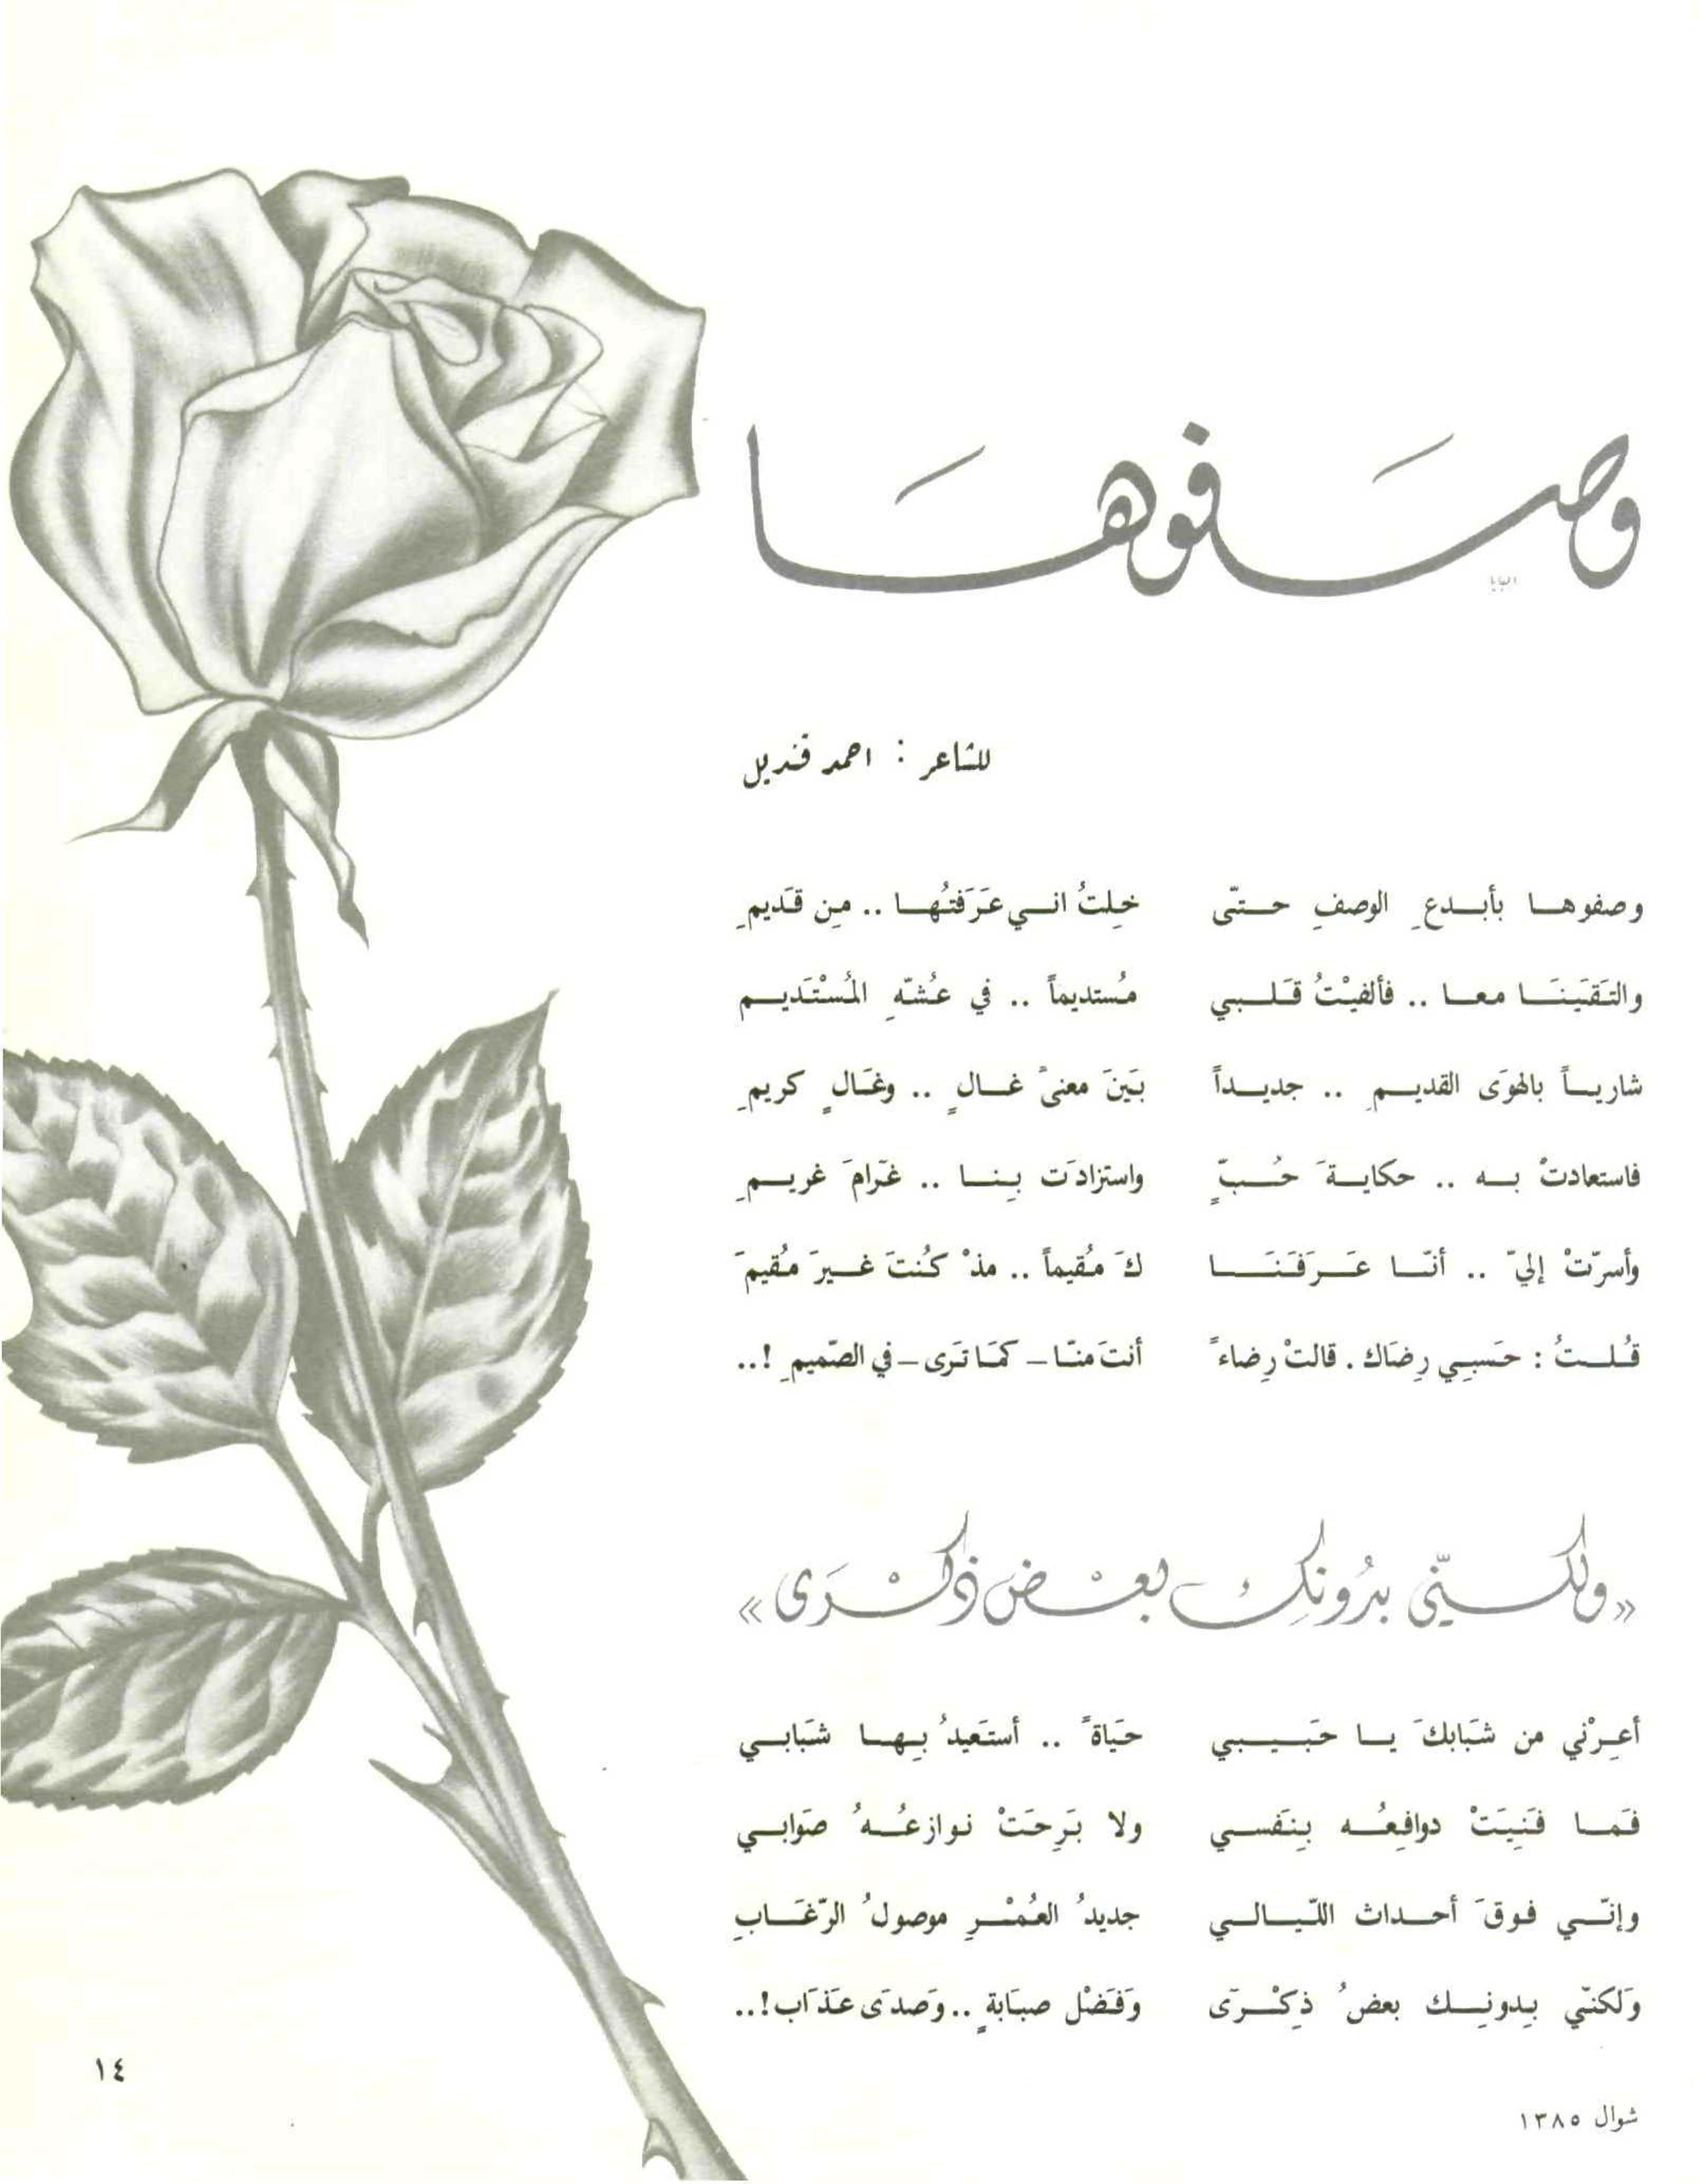 وصَفوهَا
للشاعر : احمد قنديل
وصفوها بأبدعِ الوصفِ حتّى خِلتُ اني عَرَفتُها .. مِن قَديمِ
والتَقَينَا معا .. فألفيْتُ قَلبي مُستديماً .. في عُشّهِ المُسْتَديم
شارياً بالهوَى القديمِ .. جديداً بَينَ معنىً غالٍ .. وغَالٍ كريمِ
فاستعادتْ به .. حكايةَ حُبّ واستزادَت بِنا .. غَرامَ غريمِ
وأسرّتْ إليّ .. أنّا عَرَفَنَا كَ مُقيماً .. مذْ كُنتَ غيرَ مُقيمَ
قُلتُ : حَسبِي رِضَاك . قالتْ رِضاءً أنتَ منّا – كمَا تَرى – في الصّميمِ !..
«ولكنّي بدُونِكِ بعْض ذكْرَى»
أعِرْني من شبَابكَ يا حَبَيبي حيَاةً .. أستَعيدُ بِها شبَابي
فَمَا فَنِيَتْ دوافِعُه بِنَفسي ولا بَرِحَتْ نوازعُهُ صوَابي
وإنّي فوقَ أحداث اللّيالي جديدُ العُمْرِ موصولُ الرّغَابِ
وَلكنّي بِدونِك بعضُ ذِكْرَى وَفَضْل صبَابةٍ .. وَصدَى عَذَاب !..
١٤
شوال ١٣٨٥